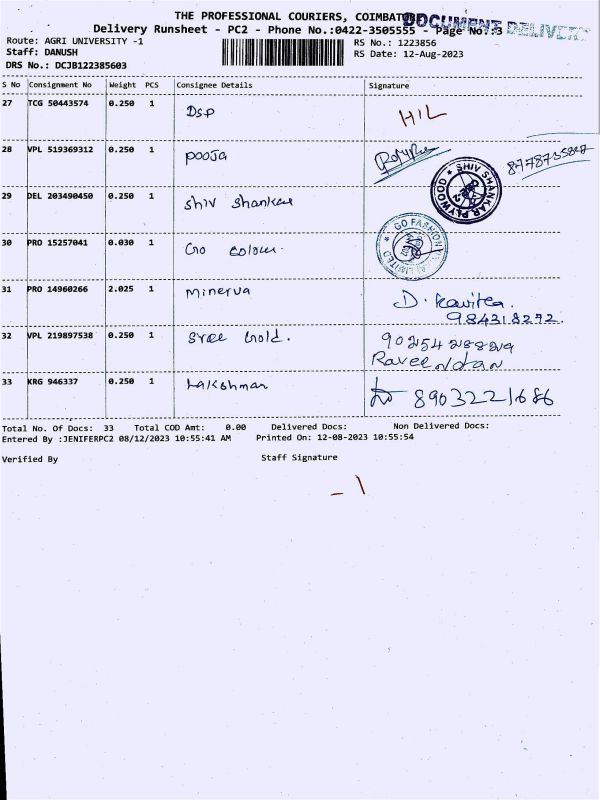 THE PROFESSIONAL COURIERS, COIMBATORE
DOCUMENT DELIVERY
Delivery Runsheet - PC2 - Phone No.:0422-3505555 - Page No.:3
Route: AGRI UNIVERSITY -1
RS No.: 1223856
Staff: DANUSH
RS Date: 12-Aug-2023
DRS No.: DCJB122385603
S No Consignment No Weight PCS Consignee Details Signature
27 TCG 50443574 0.250 1 DSP HIL
28 VPL 519369312 0.250 1 Pooja
29 DEL 203490450 0.250 1 Shiv Shankar
SHIV SHANKAR PLYWOOD
30 PRO 15257041 0.030 1 Go colour.
GO FASHION LIMITED
31 PRO 14960266 2.025 1 Minerva D. Kavitha.
984318292.
32 VPL 219897538 0.250 1 Sree Gold.
Raveendran
33 KRG 946337 0.250 1 Lakshman 8903221686
Total No. Of Docs: 33 Total COD Amt: 0.00 Delivered Docs: Non Delivered Docs:
Entered By :JENIFERPC2 08/12/2023 10:55:41 AM Printed On: 12-08-2023 10:55:54
Verified By Staff Signature
- 1